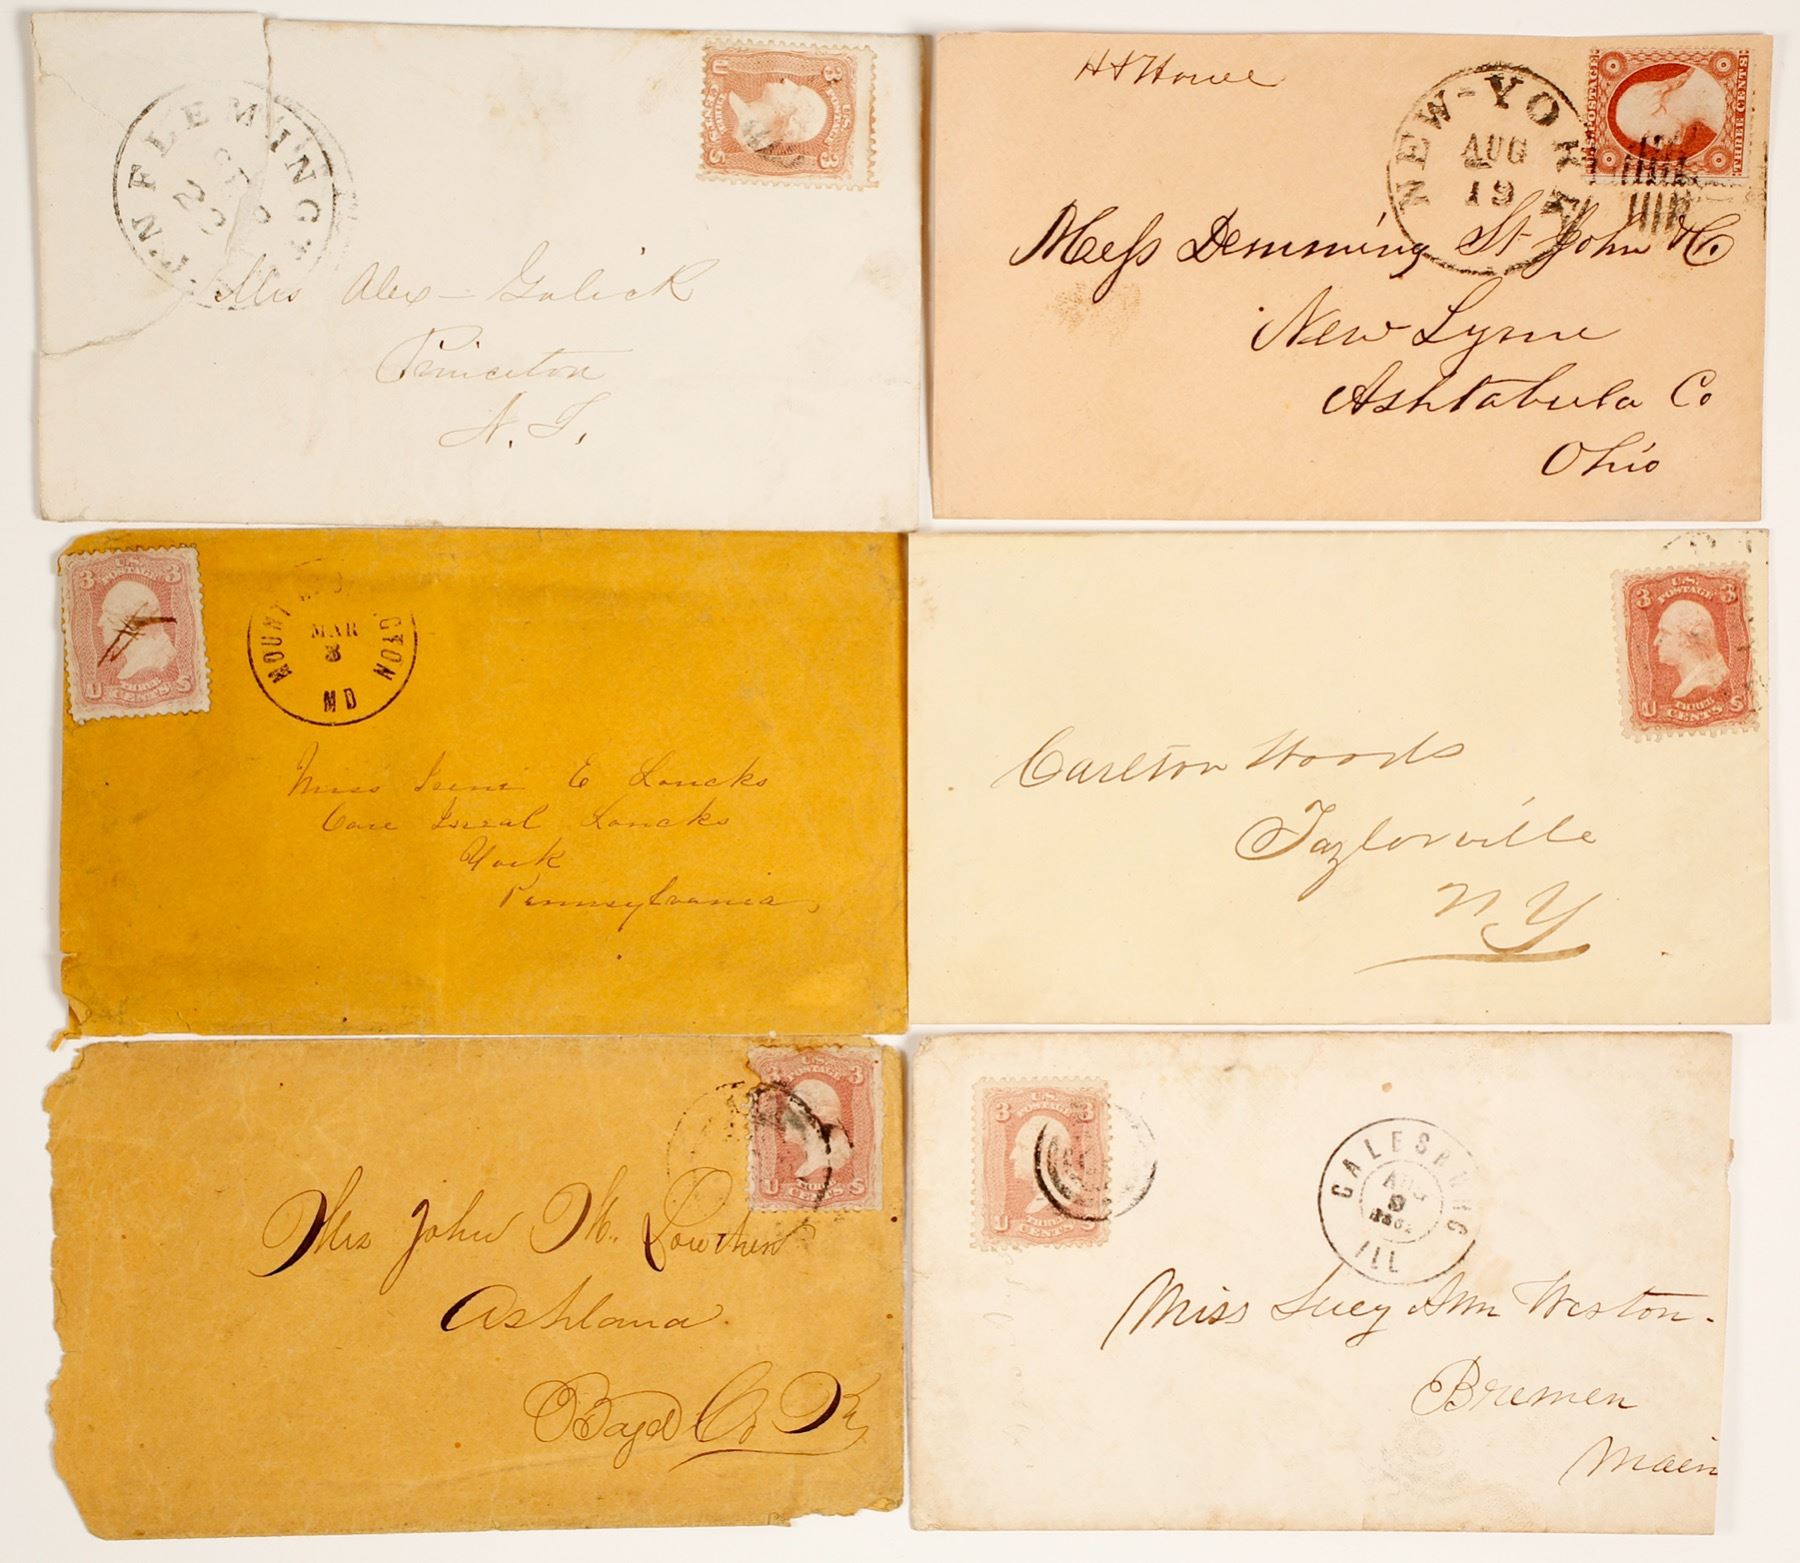 N. FLEMINGT
3
3
U.S.
POSTAGE
THREE
CENTS
U
S
Mrs Alex - Golick
Princeton
N. J.
H H Howe
NEW-YORK
AUG
19
U.S. POSTAGE
THREE CENTS
Mess Demming St John & Co.
New Lyme
Ashtabula Co
Ohio
3
U.S.
POSTAGE
3
U
THREE
CENTS
S
MOUNT GTON
MAR
MD
Miss E Loucks
Care Isreal Loucks
York
Pennsylvania,
3
U.S.
POSTAGE
3
U
THREE
CENTS
S
Carlton Woods
Taylorville
N Y
3
U.S.
POSTAGE
3
U
THREE
CENTS
S
Mrs John W.
Ashland.
Boyd Co Ky
3
U.S.
POSTAGE
3
U
THREE
CENTS
S
GALESBURG
AUG
9
ILL
Miss Lucy Ann Weston.
Bremen
Main